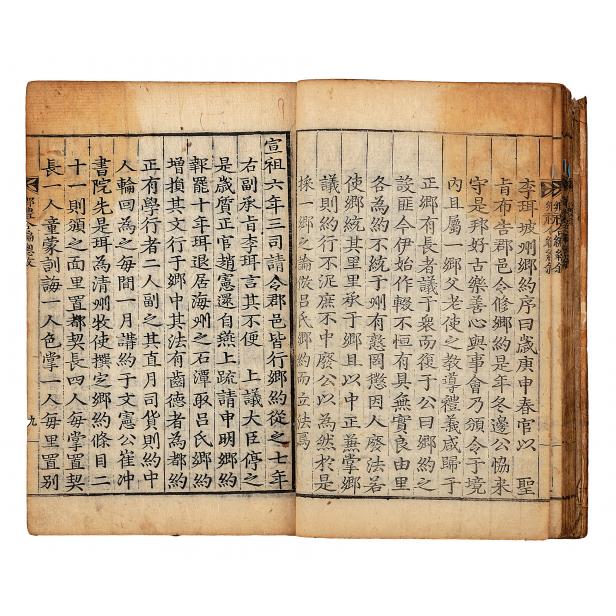 李珥坡州鄉約序曰歲庚申春官以 聖
旨布告郡邑令修鄉約是年冬邊公恊來
守是邦好古樂善心與事會乃頒令于境
內且屬一鄉父老使之教導禮義咸歸于
正鄉有長者議于衆而復于公曰鄉約之
設匪今伊始作輟不恒有具無實良由里
各為約不統于州有慤罔懲因人廢法若
使鄉統其里里承于鄉且以中正兼掌鄉
議則約行不泥庶不中廢公以為然於是
採一鄉之論倣呂氏鄉約而立法焉
宣祖六年三司請令郡邑皆行鄉約從之七年
右副承旨李珥言其不便 上議大臣停之
是歲質正官趙憲還自燕上疏請申明鄉約
報罷十年珥退居海州之石潭取呂氏鄉約
增損其文行于鄉中其法有齒德者為都約
正有學行者二人副之其直月司貨則約中
人輪回為之每間一月講約于文憲公崔冲
書院先是珥為清州牧使撰定鄉約條目二
十一則頒之面里置都契長四人每掌置契
長一人童蒙訓誨一人色掌一人每里置別
鄉禮合編總敘 九